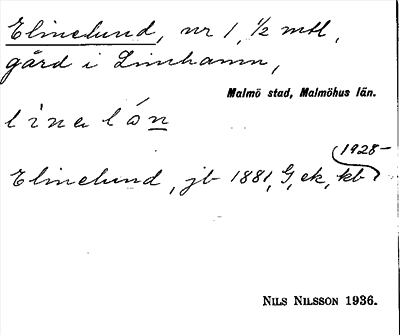 Elinelund, nr 1, 1/2 mtl,
gård i Limhamn,
Malmö stad, Malmöhus län.
l i n e l ó n
1928-
Elinelund, jb 1881, G, ek, kb
NILS NILSSON 1936.